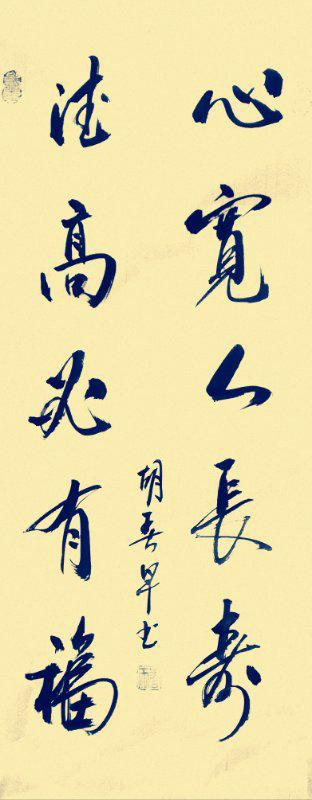 心寬人長壽
德高必有福
胡春早书